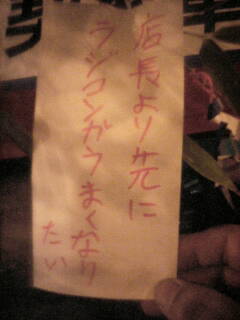 店長より先に
ラジコンがうまくなり
たい